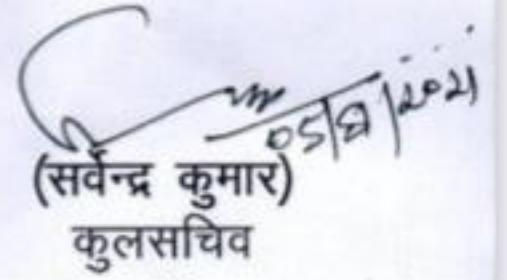 05/8/2021
(सर्वेन्द्र कुमार)
कुलसचिव